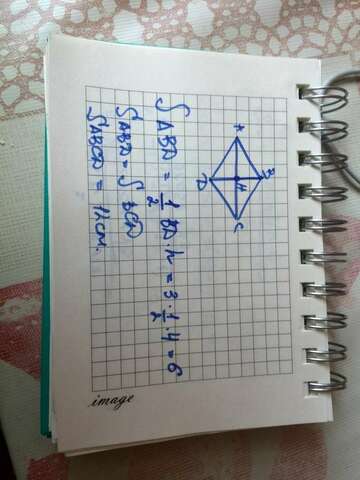 A
B
D
H
C
S ABD = 1/2 BD · h = 3 · 1/2 · 4 = 6
S ABD = S BCD
S ABCD = 12 см.
image